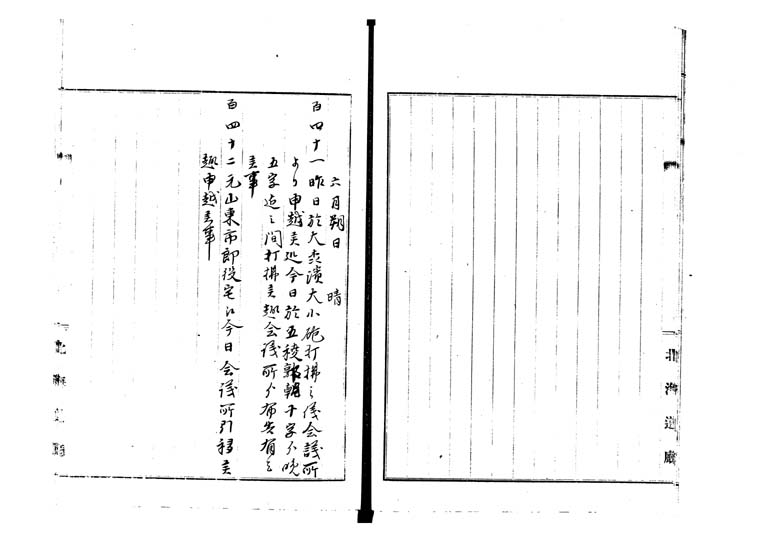 六月朔日 晴
百四十一 昨日於大森濱大小砲打拂之儀会議所
より申越候処今日於五稜郭朝十字ゟ晩
五字迄之間打拂候趣会議所ゟ布告有之
候事
百四十二 元山東市郎役宅江今日会議所引移候
趣申越候事
北海道廳